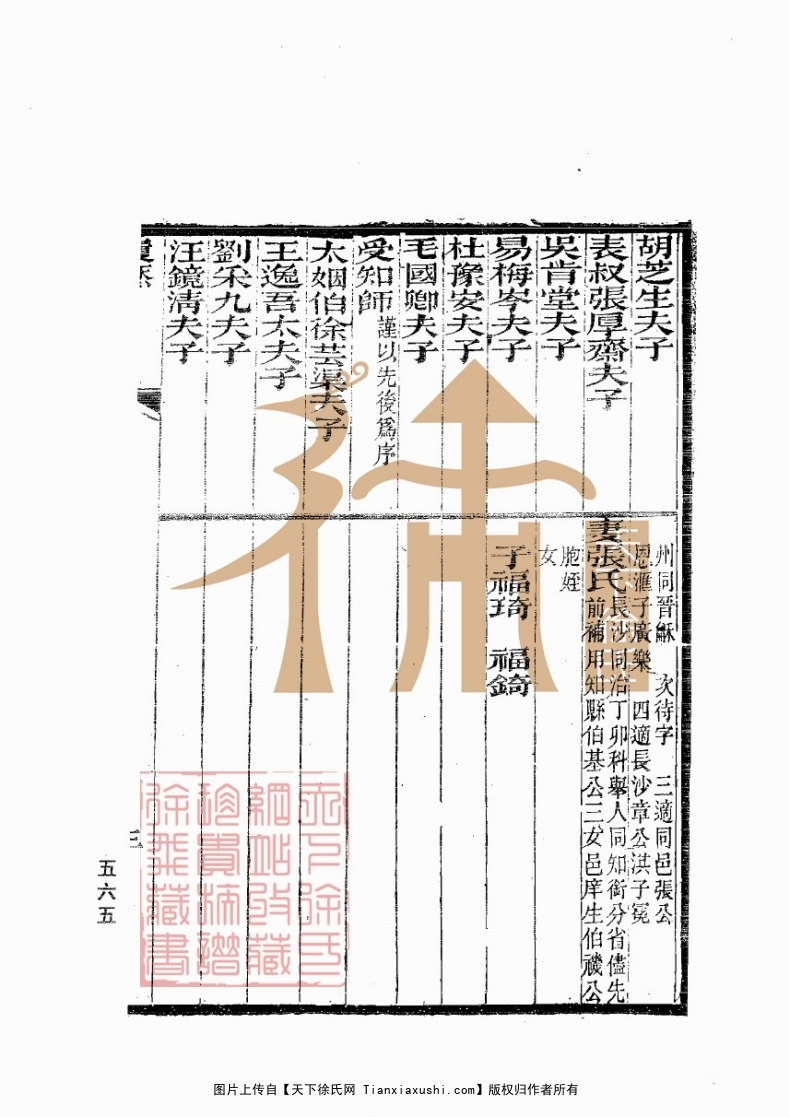 胡芝生夫子
表叔張厚齋夫子
吳肯堂夫子
易梅岑夫子
杜豫安夫子
毛國卿夫子
受知師謹以先後爲序
太姻伯徐芸渠夫子
王逸吾太夫子
劉采九夫子
汪鏡清夫子
州同晉穌　次待字　三適同邑張公
恩滙子廣樂　四適長沙章公淇子冕
妻張氏長沙同治丁卯科舉人同知銜分省儘先
前補用知縣伯基公三女邑庠生伯禨公
胞姪
女
子福琦　福錡
三
五六五
天下徐氏
網站收藏
珍貴族譜
徐飛藏書
图片上传自【天下徐氏网 Tianxiaxushi.com】版权归作者所有